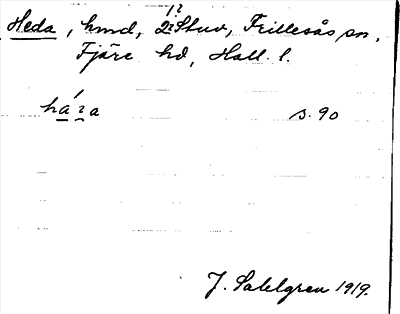 Heda, hmd, Stuv, Frillesås sn,
Fjäre hd, Hall. l.
s. 90
J. Sahlgren 1919.